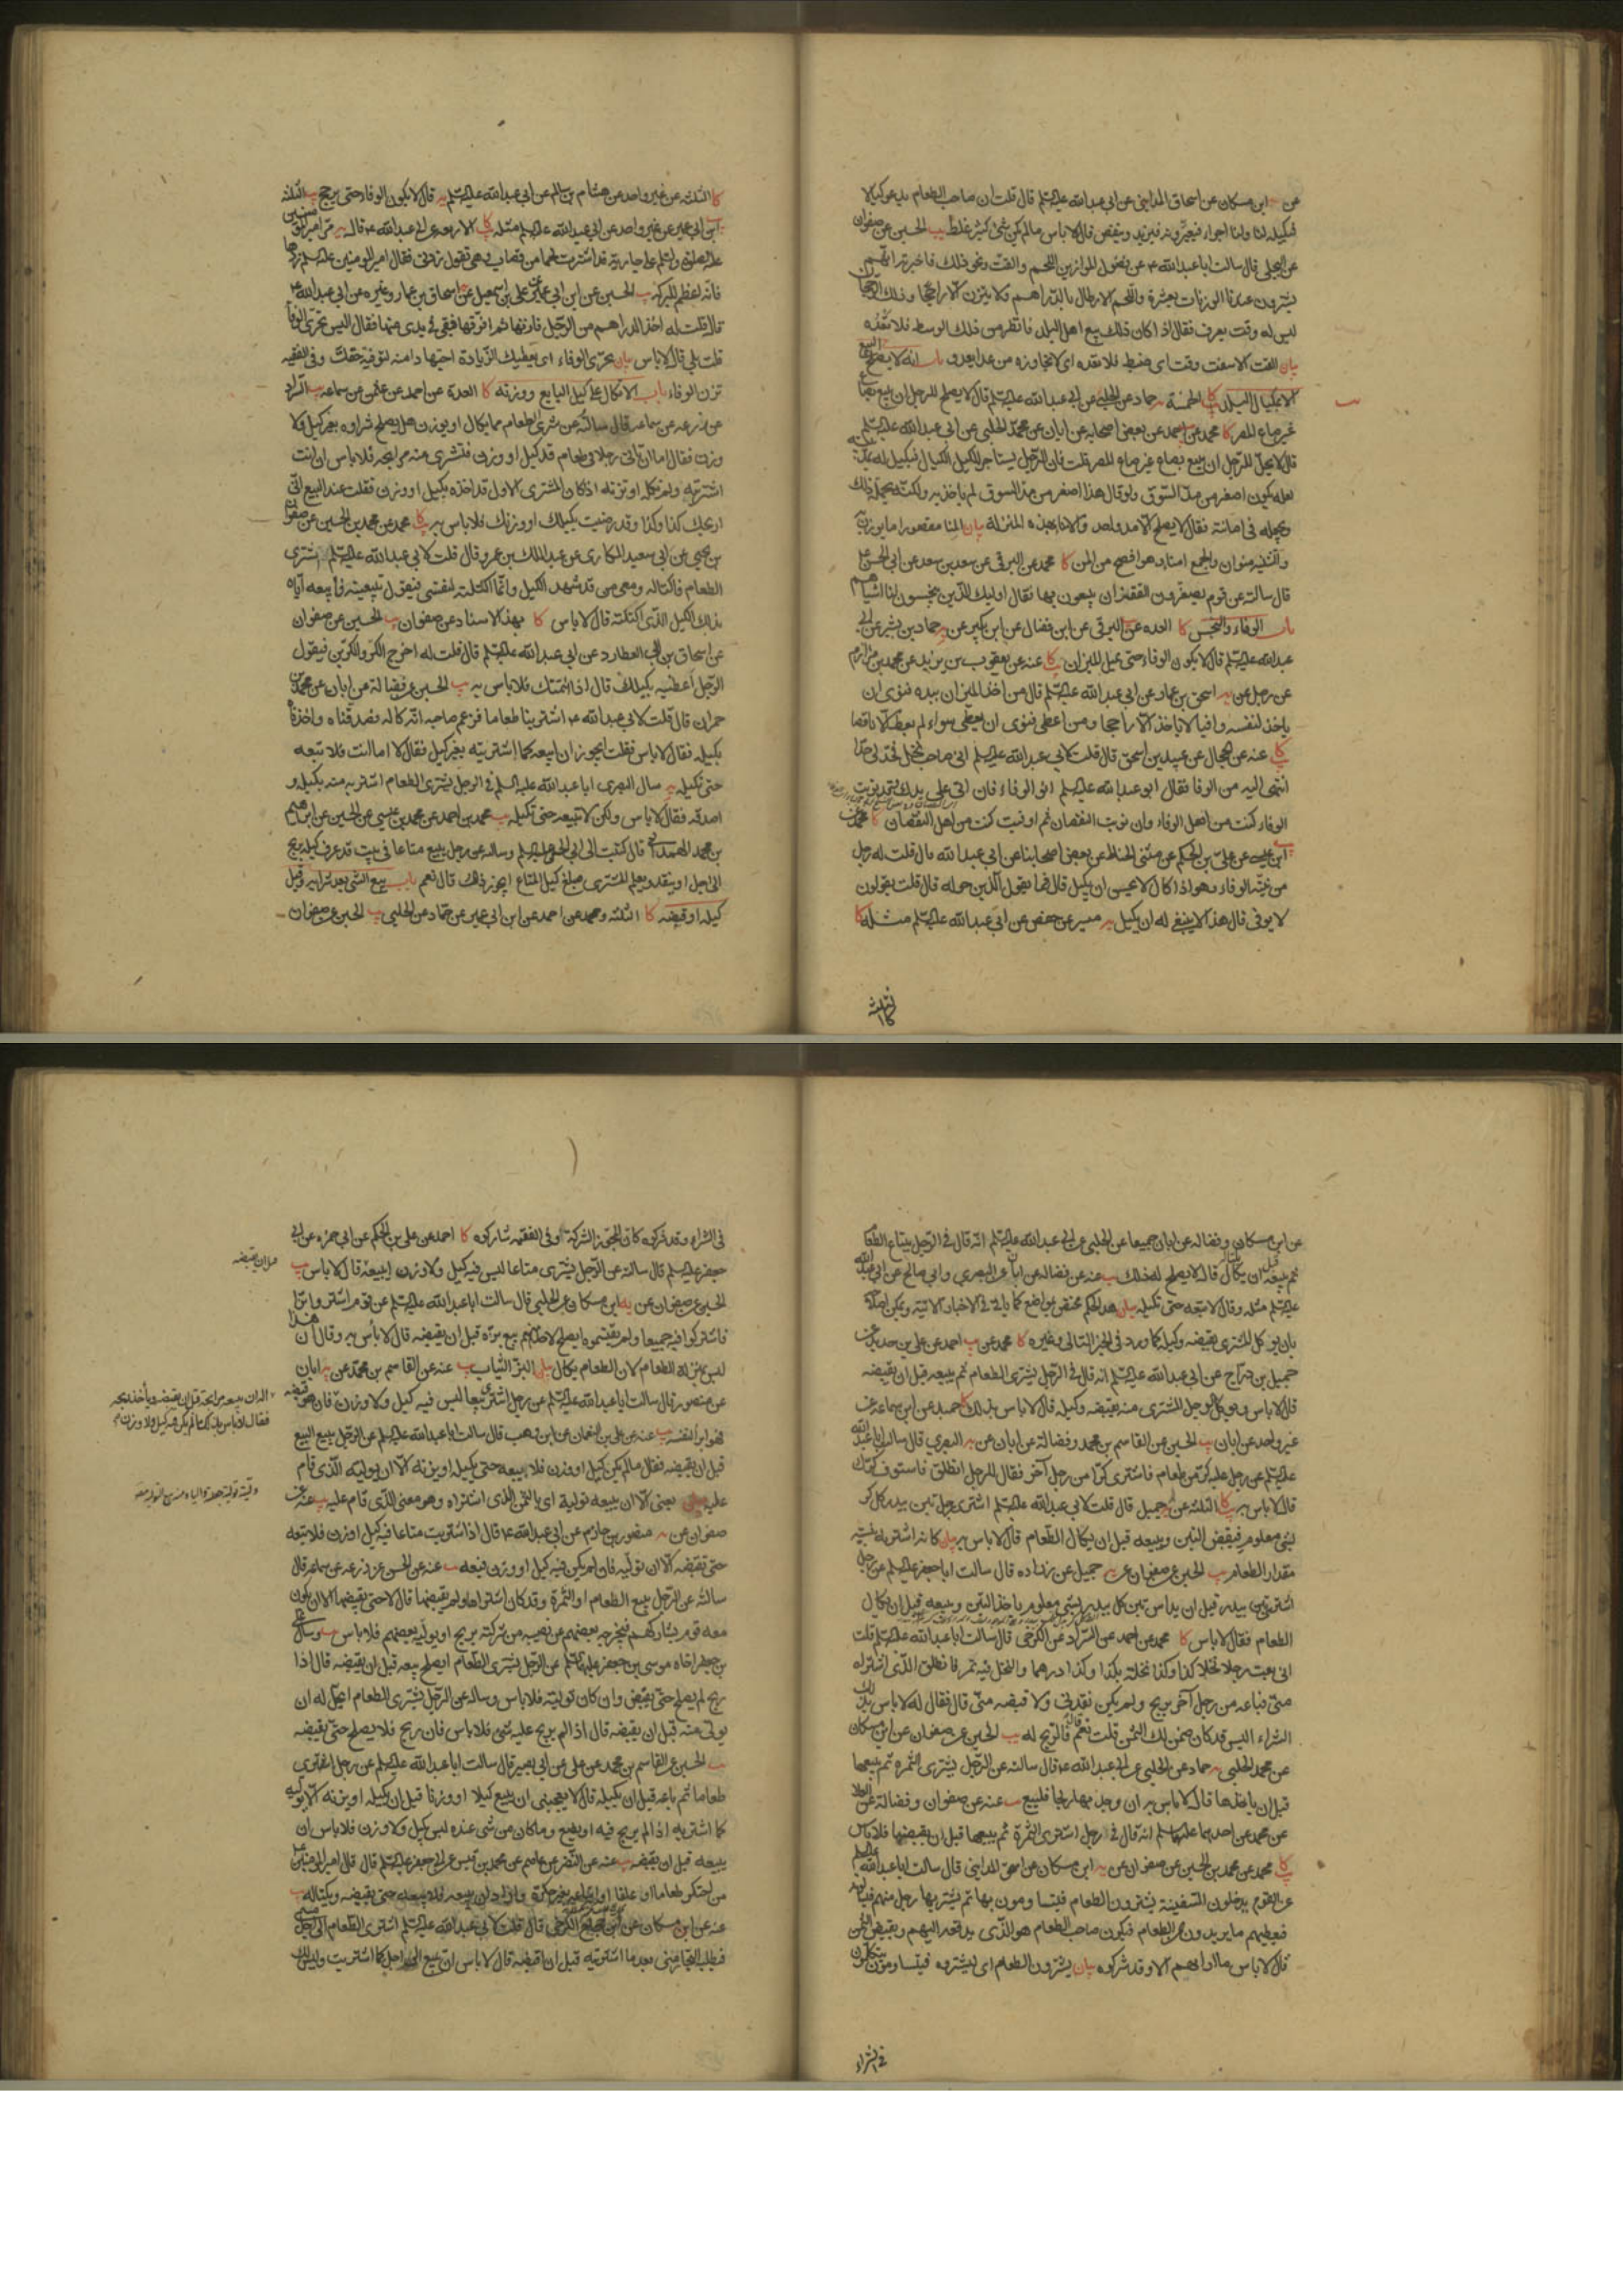 عن ابن مسكان عن اسحاق المداينى عن ابى عبدالله عليه السلم قال قلت ان صاحب الطعام يدعو كيالا
فيكيله لنا ولنا اجراء فيعيرونه فيزيد وينقص قال لا باس ما لم يكن شئ كثير غلط يب الحسين عن صفوان
عن البجلى قال سالت اباعبدالله ع عن فضول الموازين اللحم والقت ونحو ذلك فاخبرته انهم
يشترون عندنا الوزنات بعشرة واللحم الارطال بالدراهم ولا يتزن الا راجحا وذلك الرجحان
ليس له وقت يعرف فقال اذا كان ذلك بيع اهل البلد فانظر من ذلك الوسط فلا تعده
بيان القت الاسفست وقت اى ضبط فلا تعده اى لا تجاوزه من عدا يعدو باب انه لا يصلح البيع
الا بمكيال البلد كا الخمسة يه حماد عن الحلبى عن ابى عبدالله عليه السلم قال لا يصلح للرجل ان يبيع بصاع
غير صاع المصر كا محمد عن احمد عن بعض اصحابه عن ابان عن محمد الحلبى عن ابى عبدالله عليه السلم
قال لا يحل للرجل ان يبيع بصاع غير صاع المصر قلت فان الرجل يستاجر الكيال فيكيل له بمد بيته
لعله يكون اصغر من مد السوق ولو قال هذا اصغر من مد السوق لم ياخذ به ولكنه يحمله ذلك
ويجعله فى امانته فقال لا يصلح الا مد واحد والامناء بهذه المنزلة بيان المنا مقصورا ما يوزن به
والتثنية منوان والجمع امناء وهو افصح من المن كا محمد عن البرقى عن سعد بن سعد عن ابى الحسن ع
قال سالته عن قوم يصغرون القفيزان يبيعون بها فقال اوليك الذين يبخسون الناس اشياءهم
باب الوفاء والبخس كا العدة عن البرقى عن ابن فضال عن ابن بكير عن حماد بن بشير عن ابى
عبدالله عليه السلم قال لا يكون الوفاء حتى يميل الميزان كا عنه عن يعقوب بن يزيد عن محمد بن مرازم
عن رجل عن يه اسحق بن عمار عن ابى عبدالله عليه السلم قال من اخذ الميزان بيده فنوى ان
ياخذ لنفسه وافيا لا ياخذ الا راجحا ومن اعطى فنوى ان يعطى سواء لم يعط الا ناقصا
كا عنه عن الحجال عن عبيد بن اسحق قال قلت لابى عبدالله عليه السلم انى صاحب نخل فخبرنى بحد
انتهى اليه من الوفا فقال ابو عبدالله عليه السلم انو الوفاء فان اتى على يدك وقد نويت
الوفاء كنت من اهل الوفاء وان نويت النقصان ثم اوفيت كنت من اهل النقصان كا محمد عن
ابن عيسى عن على بن الحكم عن مثنى الحناط عن بعض اصحابنا عن ابى عبدالله قال قلت له رجل
من نيته الوفاء وهو اذا كال لا يحسن ان يكيل قال فما يقول الذين حوله قال قلت يقولون
لا يوفى قال هذا لا ينبغى له ان يكيل يه ميسر عن حفص عن ابى عبدالله عليه السلم مثله كا
الثلاثة
كا الثلثه عن غير واحد عن هشام بن سالم عن ابى عبدالله عليه السلم قال لا يكون الوفاء حتى يرجح يب الثلثة
ابن ابى عمير عن غير واحد عن ابى عبدالله عليه السلم مثله كا الاربعه عن ابى عبدالله ع قال يه مر امير المؤمنين
عليه السلم على جارية قد اشترت لحما من قصاب وهى تقول زدنى فقال امير المومنين عليه السلم زدها
فانه اعظم للبركة يب الحسين عن ابن ابى عمير عن على بن اسمعيل عن اسحاق بن عمار وغيره عن ابى عبدالله ع
قال قلت له اخذ الدراهم من الرجل فازنها ثم افرقها فيبقى فى يدى منها فقال اليس تحرى الوفا
قلت بلى قال لا باس بيان تحرى الوفاء اى يعطيك الزيادة
تزن الوفاء باب الاتكال على كيل البايع ووزنه كا العدة عن احمد عن عثمن عن سماعه يب السراد
عن زرعه عن سماعه قال سالته عن شرى الطعام مما يكال او يوزن هل يصلح شراوه بغير كيل ولا
وزن فقال اما ان تاتى رجلا فى طعام قد كيل او وزن فتشترى منه مرابحه فلا باس ان انت
اشتريته ولم تكله او تزنه اذا كان المشترى الاول قد اخذه بكيل او وزن فقلت عند البيع انى
اربحك كذا وكذا وقد رضيت بكيلك او وزنك فلا باس به كا محمد عن محمد بن الحسين عن صفوان
بن يحيى عن ابى سعيد المكارى عن عبدالملك بن عمرو قال قلت لابى عبدالله عليه السلم اشترى
الطعام فاكتاله ومعى من قد شهد الكيل وانما اكتلته لنفسى فيقول تبيعنيه فابيعه اياه
بذلك الكيل الذى اكتلته قال لا باس كا بهذا الاسناد عن صفوان يب الحسين عن صفوان
عن اسحاق بن العطارد عن ابى عبدالله عليه السلم قال قلت له اخرج الكر والكرين فيقول
الرجل اعطنيه بكيلك قال اذا ائتمنك فلا باس به يب الحسين عن فضالة عن ابان عن محمد بن
حمران قال قلت لابى عبدالله ع اشترينا طعاما فزعم صاحبه انه كاله فصدقناه واخذناه
بكيله فقال لا باس فقلت ايجوز ان ابيعه كما اشتريته بغير كيل فقال لا اما انت فلا تبعه
حتى تكيله يه سال البصرى ابا عبدالله عليه السلم فى الرجل يشترى الطعام اشتريه منه بكيله و
اصدقه فقال لا باس ولكن لا تبيعه حتى تكيله يب محمد بن احمد عن محمد بن عيسى عن الحسين عن ابراهيم
بن محمد الهمدانى قال كتبت الى ابى الحسن عليه السلم وسالته عن رجل يبيع متاعا فى بيت قد عرف كيله بربح
الى اجل او بنقد ويعلم المشترى مبلغ كيل المتاع ايجوز ذلك قال نعم باب بيع الشئ بعد شرايه وقبل
كيله او قبضه كا الثلثه ومحمد عن احمد عن ابن ابى عمير عن حماد عن الحلبى يب الحسين عن صفوان
عن ابن مسكان وفضاله عن ابان جميعا عن الحلبى عن ابى عبدالله عليه السلم انه قال فى الرجل يبتاع الطعام
ثم يبيعه قبل ان يكال قال لا يصلح له ذلك يب عنه عن فضاله عن ابان عن البصرى وابى صالح عن ابى عبدالله
عليه السلم مثله وقال لا تبعه حتى تكيله بيان هذا الحكم مختص بمواضع كما ياتى فى الاخبار الاتية
بان يوكل المشترى بقبضه وكيله كما ورد فى الخبر التالى وغيره كا محمد عن يب احمد عن على بن حديد عن
جميل بن دراج عن ابى عبدالله عليه السلم انه قال فى الرجل يشترى الطعام ثم يبيعه قبل ان يقبضه
قال لا باس ويوكل الرجل المشترى منه بقبضه وكيله قال لا باس بذلك كا حميد عن ابن سماعه عن
غير واحد عن ابان يب الحسين عن القاسم بن محمد وفضالة عن ابان عن يه البصرى قال سالت اباعبدالله
عليه السلم عن رجل عليه كر من طعام فاشترى كرا من رجل آخر فقال للرجل انطلق فاستوف كرك
قال لا باس به كا الثلثه عن يه جميل قال قلت لابى عبدالله عليه السلم اشترى رجل تبن بيدر كل كر
بشئ معلوم فيقبض التبن ويبيعه قبل ان يكال الطعام قال لا باس به بيان
مقدار الطعام يب الحسين عن صفوان عن يه جميل عن زراره قال سالت اباجعفر عليه السلم عن رجل
اشترى تبن بيدر قبل ان يداس تبن كل بيدر بشئ معلوم ياخذ التبن ويبيعه قبل ان يكال
الطعام فقال لا باس كا محمد عن احمد عن السراد عن الكرخى قال سالت اباعبدالله عليه السلم قلت
انى بعت رجلا نخلا كذا وكذا نخلة بكذا وكذا درهما والنخل فيه ثمر فانطلق الذى اشتراه
منى فباعه من رجل آخر بربح ولم يكن نقدنى ولا قبضه منى قال فقال له لا باس بذلك
الشراء اليس قد كان ضمن لك الثمن قلت نعم قال فالربح له يب الحسين عن صفوان عن ابن مسكان
عن محمد الحلبى يه حماد عن الحلبى عن ابى عبدالله ع قال سالته عن الرجل يشترى الثمره ثم يبيعها
قبل ان ياخذها قال لا باس به ان وجد بها ربحا فليبع يب عنه عن صفوان وفضالة عن العلا
عن محمد عن احدهما عليهما السلم انه قال فى رجل اشترى الثمرة ثم يبيعها قبل ان يقبضها قال لا باس
كا محمد عن محمد بن الحسين عن صفوان عن يه ابن مسكان عن اسحق المداينى قال سالت اباعبدالله عليه السلم
عن القوم يدخلون السفينة يشترون الطعام فيتساومون بها ثم يشتريها رجل منهم فيسألونه
فيعطيهم ما يريدون من الطعام فيكون صاحب الطعام هو الذى يدفعه اليهم ويقبض الثمن
قال لا باس ما اراهم الا وقد شركوه بيان يشترون الطعام اى ليشتروه فيتساومون
فى الشراء
فى الشراء وقد شركوه كا احمد عن على بن الحكم عن ابى حمزه عن ابى
جعفر عليه السلم قال سالته عن الرجل يشترى متاعا ليس فيه كيل ولا وزن ايبيعه قال لا باس يب
قبل ان يقبضه
الحسين عن صفوان عن يه ابن مسكان عن الحلبى قال سالت اباعبدالله عليه السلم عن قوم اشتروا بزا
فاشتركوا فيه جميعا ولم يقتسموه ايصلح لاحد منهم بيع بزه قبل ان يقبضه قال لا باس به وقال ان هذا
ليس بمنزلة الطعام لان الطعام يكال بيان البز الثياب يب عنه عن القاسم بن محمد عن يه ابان
عن منصور قال سالت اباعبدالله عليه السلم عن رجل اشترى بيعا ليس فيه كيل ولا وزن فان هو قبضه
اله ان يبيعه مرابحة قبل ان يقبضه وياخذ ربحه
فقال لا باس بذلك ما لم يكن فيه كيل ولا وزن
فهو ابرأ لنفسه يب عنه عن على بن النعمان عن ابن وهب قال سالت اباعبدالله عليه السلم عن الرجل يبيع البيع
قبل ان يقبضه فقال ما لم يكن كيل او وزن فلا يبيعه حتى يكيله او يزنه الا ان يوليه الذى قام
عليه بيان يعنى الا ان يبيعه تولية اى بالثمن الذى اشتراه وهو معنى الذى قام عليه يب عنه عن
صفوان عن يه منصور بن حازم عن ابى عبدالله ع قال اذا اشتريت متاعا فيه كيل او وزن فلا تبعه
حتى تقبضه الا ان توليه فان لم يكن فيه كيل او وزن فبعه يب عنه عن الحسن عن زرعه عن سماعه قال
سالته عن الرجل يبيع الطعام او الثمرة وقد كان اشتراها ولم يقبضها قال لا حتى يقبضها الا ان يكون
معه قوم يشاركهم فيخرجه بعضهم عن نصيبه من شركته بربح او يوليه بعضهم فلا باس يب وسال على
بن جعفر اخاه موسى بن جعفر عليهما السلم عن الرجل يشترى الطعام ايصلح بيعه قبل ان يقبضه قال اذا
ربح لم يصلح حتى يقبض وان كان تولية فلا باس وساله عن الرجل يشترى الطعام ايحل له ان
يولى منه قبل ان يقبضه قال اذا لم يربح عليه شئ فلا باس فان ربح فلا يصلح حتى يقبضه
يب الحسين عن القاسم بن محمد عن على عن ابى بصير قال سالت اباعبدالله عليه السلم عن رجل اشترى
طعاما ثم باعه قبل ان يكيله قال لا يعجبنى ان يبيع كيلا او وزنا قبل ان يكيله او يزنه الا ان يوليه
كما اشتريه اذا لم يربح فيه او يضع وما كان من شئ عنده ليس بكيل ولا وزن فلا باس ان
يبيعه قبل ان يقبضه يب عنه عن النضر عن عاصم عن محمد بن قيس عن ابى جعفر عليه السلم قال قال امير المومنين ع
من احتكر طعاما او علفا او ابتاعه بغير حكرة واراد ان يبيعه فلا يبيعه حتى يقبضه ويكتاله يب
عنه عن ابن مسكان عن الكرخى قال قلت لابى عبدالله عليه السلم اشترى الطعام الى اجل مسمى
فيطلبه التجار منى بعد ما اشتريته قبل ان اقبضه قال لا باس ان تبيع الى اجل كما اشتريت وليس لك